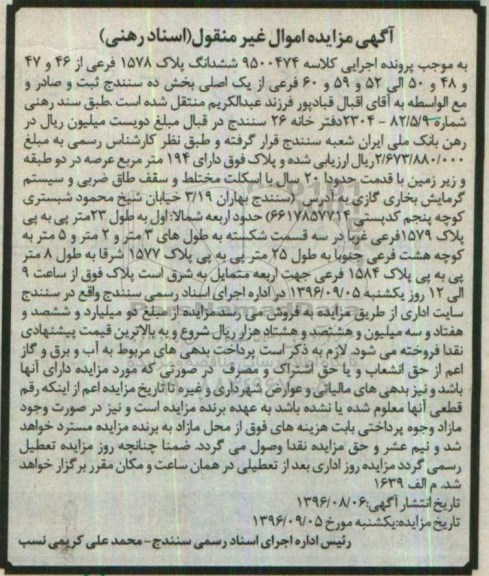 آگهی مزایده اموال غیر منقول(اسناد رهنی)
به موجب پرونده اجرایی کلاسه ۹۵۰۰۴۷۴ ششدانگ پلاک ۱۵۷۸ فرعی از ۴۶ و ۴۷
و ۴۸ و ۵۰ الی ۵۲ و ۵۹ و ۶۰ فرعی از یک اصلی بخش ده سنندج ثبت و صادر و
مع الواسطه به آقای اقبال قبادپور فرزند عبدالکریم منتقل شده است .طبق سند رهنی
شماره ۸۲/۵/۹ - ۲۳۰۴دفتر خانه ۲۶ سنندج در قبال مبلغ دویست میلیون ریال در
رهن بانک ملی ایران شعبه سنندج قرار گرفته و طبق نظر کارشناس رسمی به مبلغ
۲/۶۷۳/۸۸۰/۰۰۰ریال ارزیابی شده و پلاک فوق دارای ۱۹۴ متر مربع عرصه در دو طبقه
و زیر زمین با قدمت حدودا ۲۰ سال با اسکلت مختلط و سقف طاق ضربی و سیستم
گرمایش بخاری گازی به آدرس (سنندج بهاران ۳/۱۹ خیابان شیخ محمود شبستری
کوچه پنجم کدپستی ۶۶۱۷۸۵۷۷۱۴) حدود اربعه شمالا: اول به طول ۲۳متر پی به پی
پلاک ۱۵۷۹فرعی غربا در سه قسمت شکسته به طول های ۳ متر و ۲ متر و ۵ متر به
کوچه هشت فرعی جنوبا به طول ۲۵ متر پی به پی پلاک ۱۵۷۷ شرقا به طول ۸ متر
پی به پی پلاک ۱۵۸۴ فرعی جهت اربعه متمایل به شرق است پلاک فوق از ساعت ۹
الی ۱۲ روز یکشنبه ۱۳۹۶/۰۹/۰۵ در اداره اجرای اسناد رسمی سنندج واقع در سنندج
سایت اداری از طریق مزایده به فروش می رسد.مزایده از مبلغ دو میلیارد و ششصد و
هفتاد و سه میلیون و هشتصد و هشتاد هزار ریال شروع و به بالاترین قیمت پیشنهادی
نقدا فروخته می شود. لازم به ذکر است پرداخت بدهی های مربوط به آب و برق و گاز
اعم از حق انشعاب و یا حق اشتراک و مصرف در صورتی که مورد مزایده دارای آنها
باشد و نیز بدهی های مالیاتی و عوارض شهرداری و غیره تا تاریخ مزایده اعم از اینکه رقم
قطعی آنها معلوم شده یا نشده باشد به عهده برنده مزایده است و نیز در صورت وجود
مازاد وجوه پرداختی بابت هزینه های فوق از محل مازاد به برنده مزایده مسترد خواهد
شد و نیم عشر و حق مزایده نقدا وصول می گردد. ضمنا چنانچه روز مزایده تعطیل
رسمی گردد مزایده روز اداری بعد از تعطیلی در همان ساعت و مکان مقرر برگزار خواهد
شد. م الف ۱۶۳۹
تاریخ انتشار آگهی:۱۳۹۶/۰۸/۰۶
تاریخ مزایده:یکشنبه مورخ ۱۳۹۶/۰۹/۰۵
رئیس اداره اجرای اسناد رسمی سنندج- محمد علی کریمی نسب